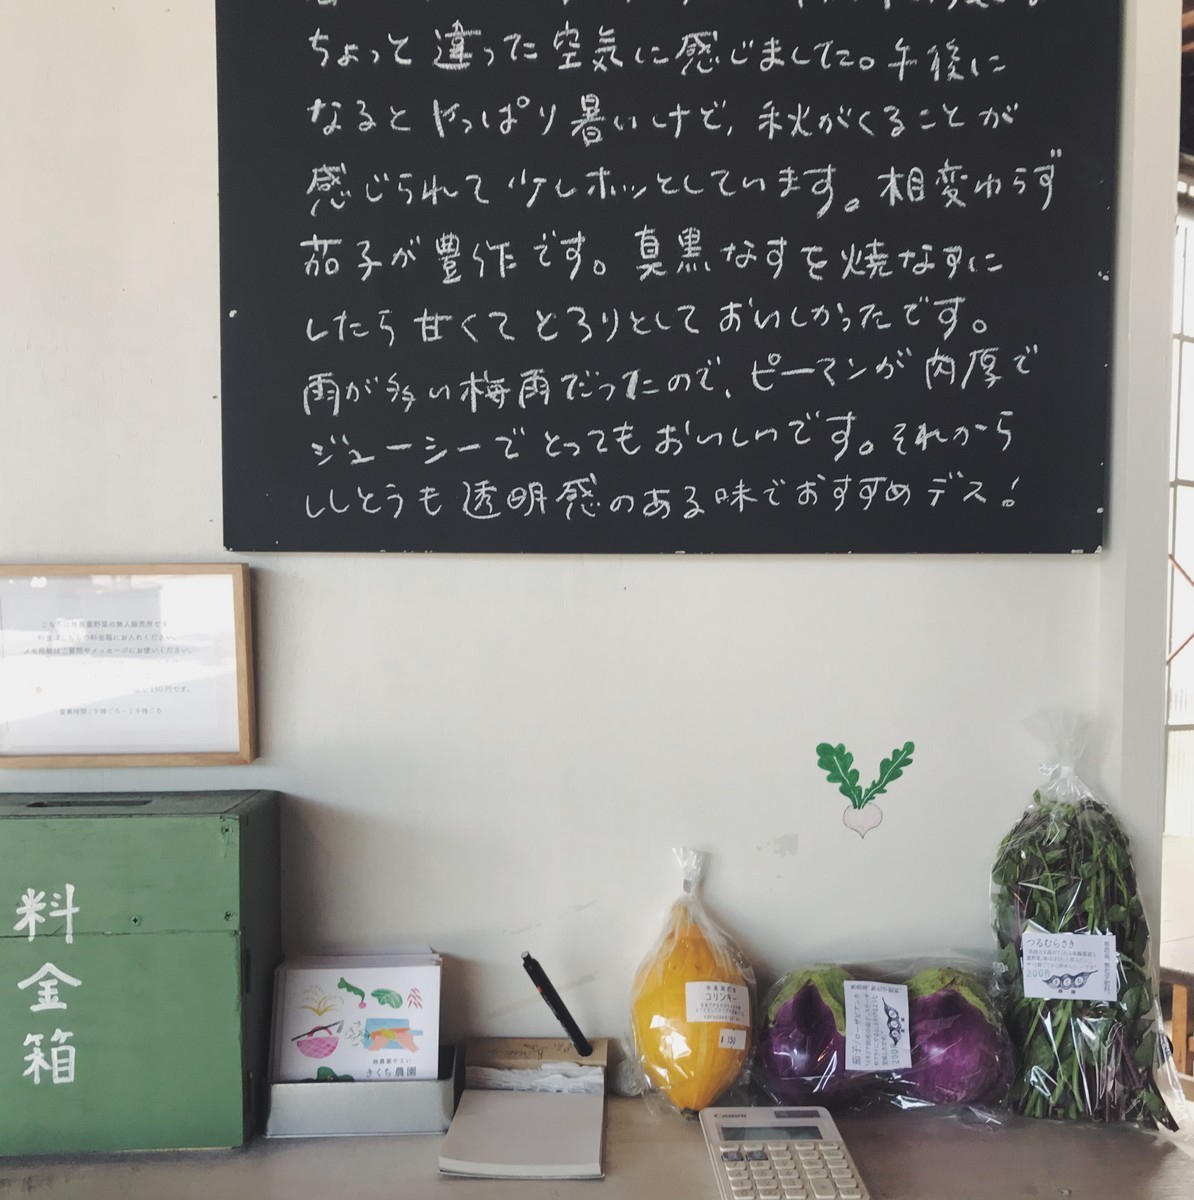 ちょっと違った空気に感じました。午後に
なるとやっぱり暑いけど、秋がくることが
感じられて少しホッとしています。相変わらず
茄子が豊作です。真黒なすを焼なすに
したら甘くてとろりとしておいしかったです。
雨が多い梅雨だったので、ピーマンが肉厚で
ジューシーでとってもおいしいです。それから
ししとうも透明感のある味でおすすめデス!
こちらは無農薬野菜の無人販売所です
料金はこちらの料金箱にお入れください。
メモ用紙はご質問やメッセージにお使いください。
150円です。
営業時間:9時ごろ-19時ごろ
料金箱
無農薬やさい
きくち農園
コリンキー
¥150
茄子/ローザビアンコ
200円
つるむらさき
200円
CANON